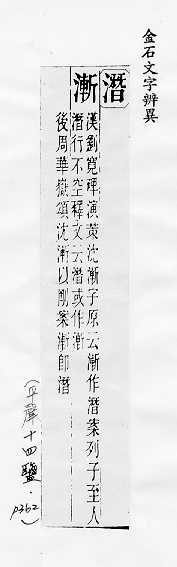 金石文字辨異
潛
漸
漢劉寬碑演策沈漸字原云漸作潛案列子至人
潛行不空釋文云潛或作漸
後周華嶽頌沈漸以剛案漸即潛
(平聲十四鹽.p362)